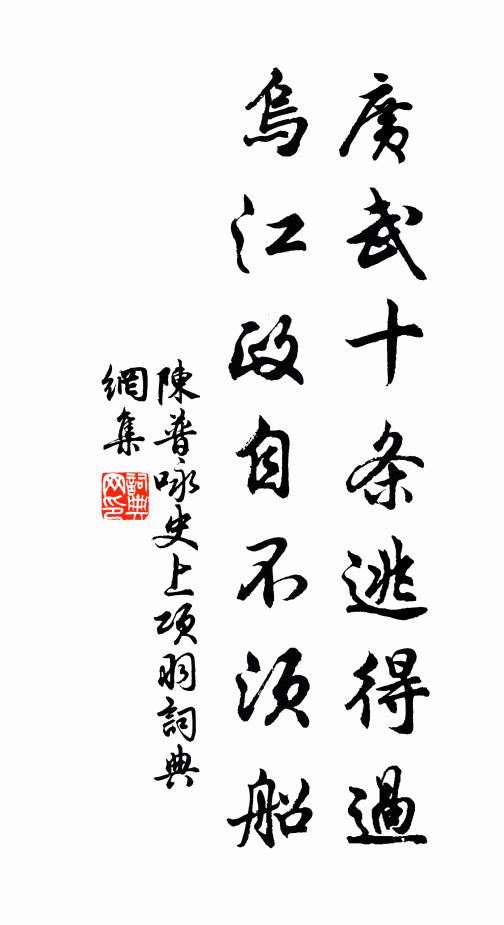 廣武十条逃得過
烏江政自不須船
陳普咏史上項羽詞典
網集
詞典網印